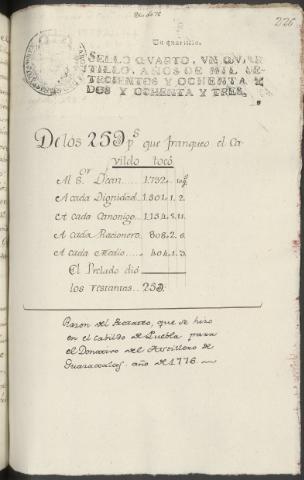 226
Un quartillo.
SELLO QVARTO, VN QVAR
TILLO, AÑOS DE MIL SE-
TECIENTOS Y OCHENTA Y
DOS Y OCHENTA Y TRES.
De los 25℈ p.s que franqueo el Ca-
vildo tocó
Al S.or Dean
A cada Dignidad 1.501.1.2.
A cada Canonigo 1.154.5.11.
A cada Racionero 808.2.6.
A cada Medio 404.1.3.
El Prelado dió
los restantes 25℈.
Razon del Prorrateo, que se hizo
en el Cabildo de Puebla para
el Donativo del Astillero de
Guazacoalcos. año de 1776.